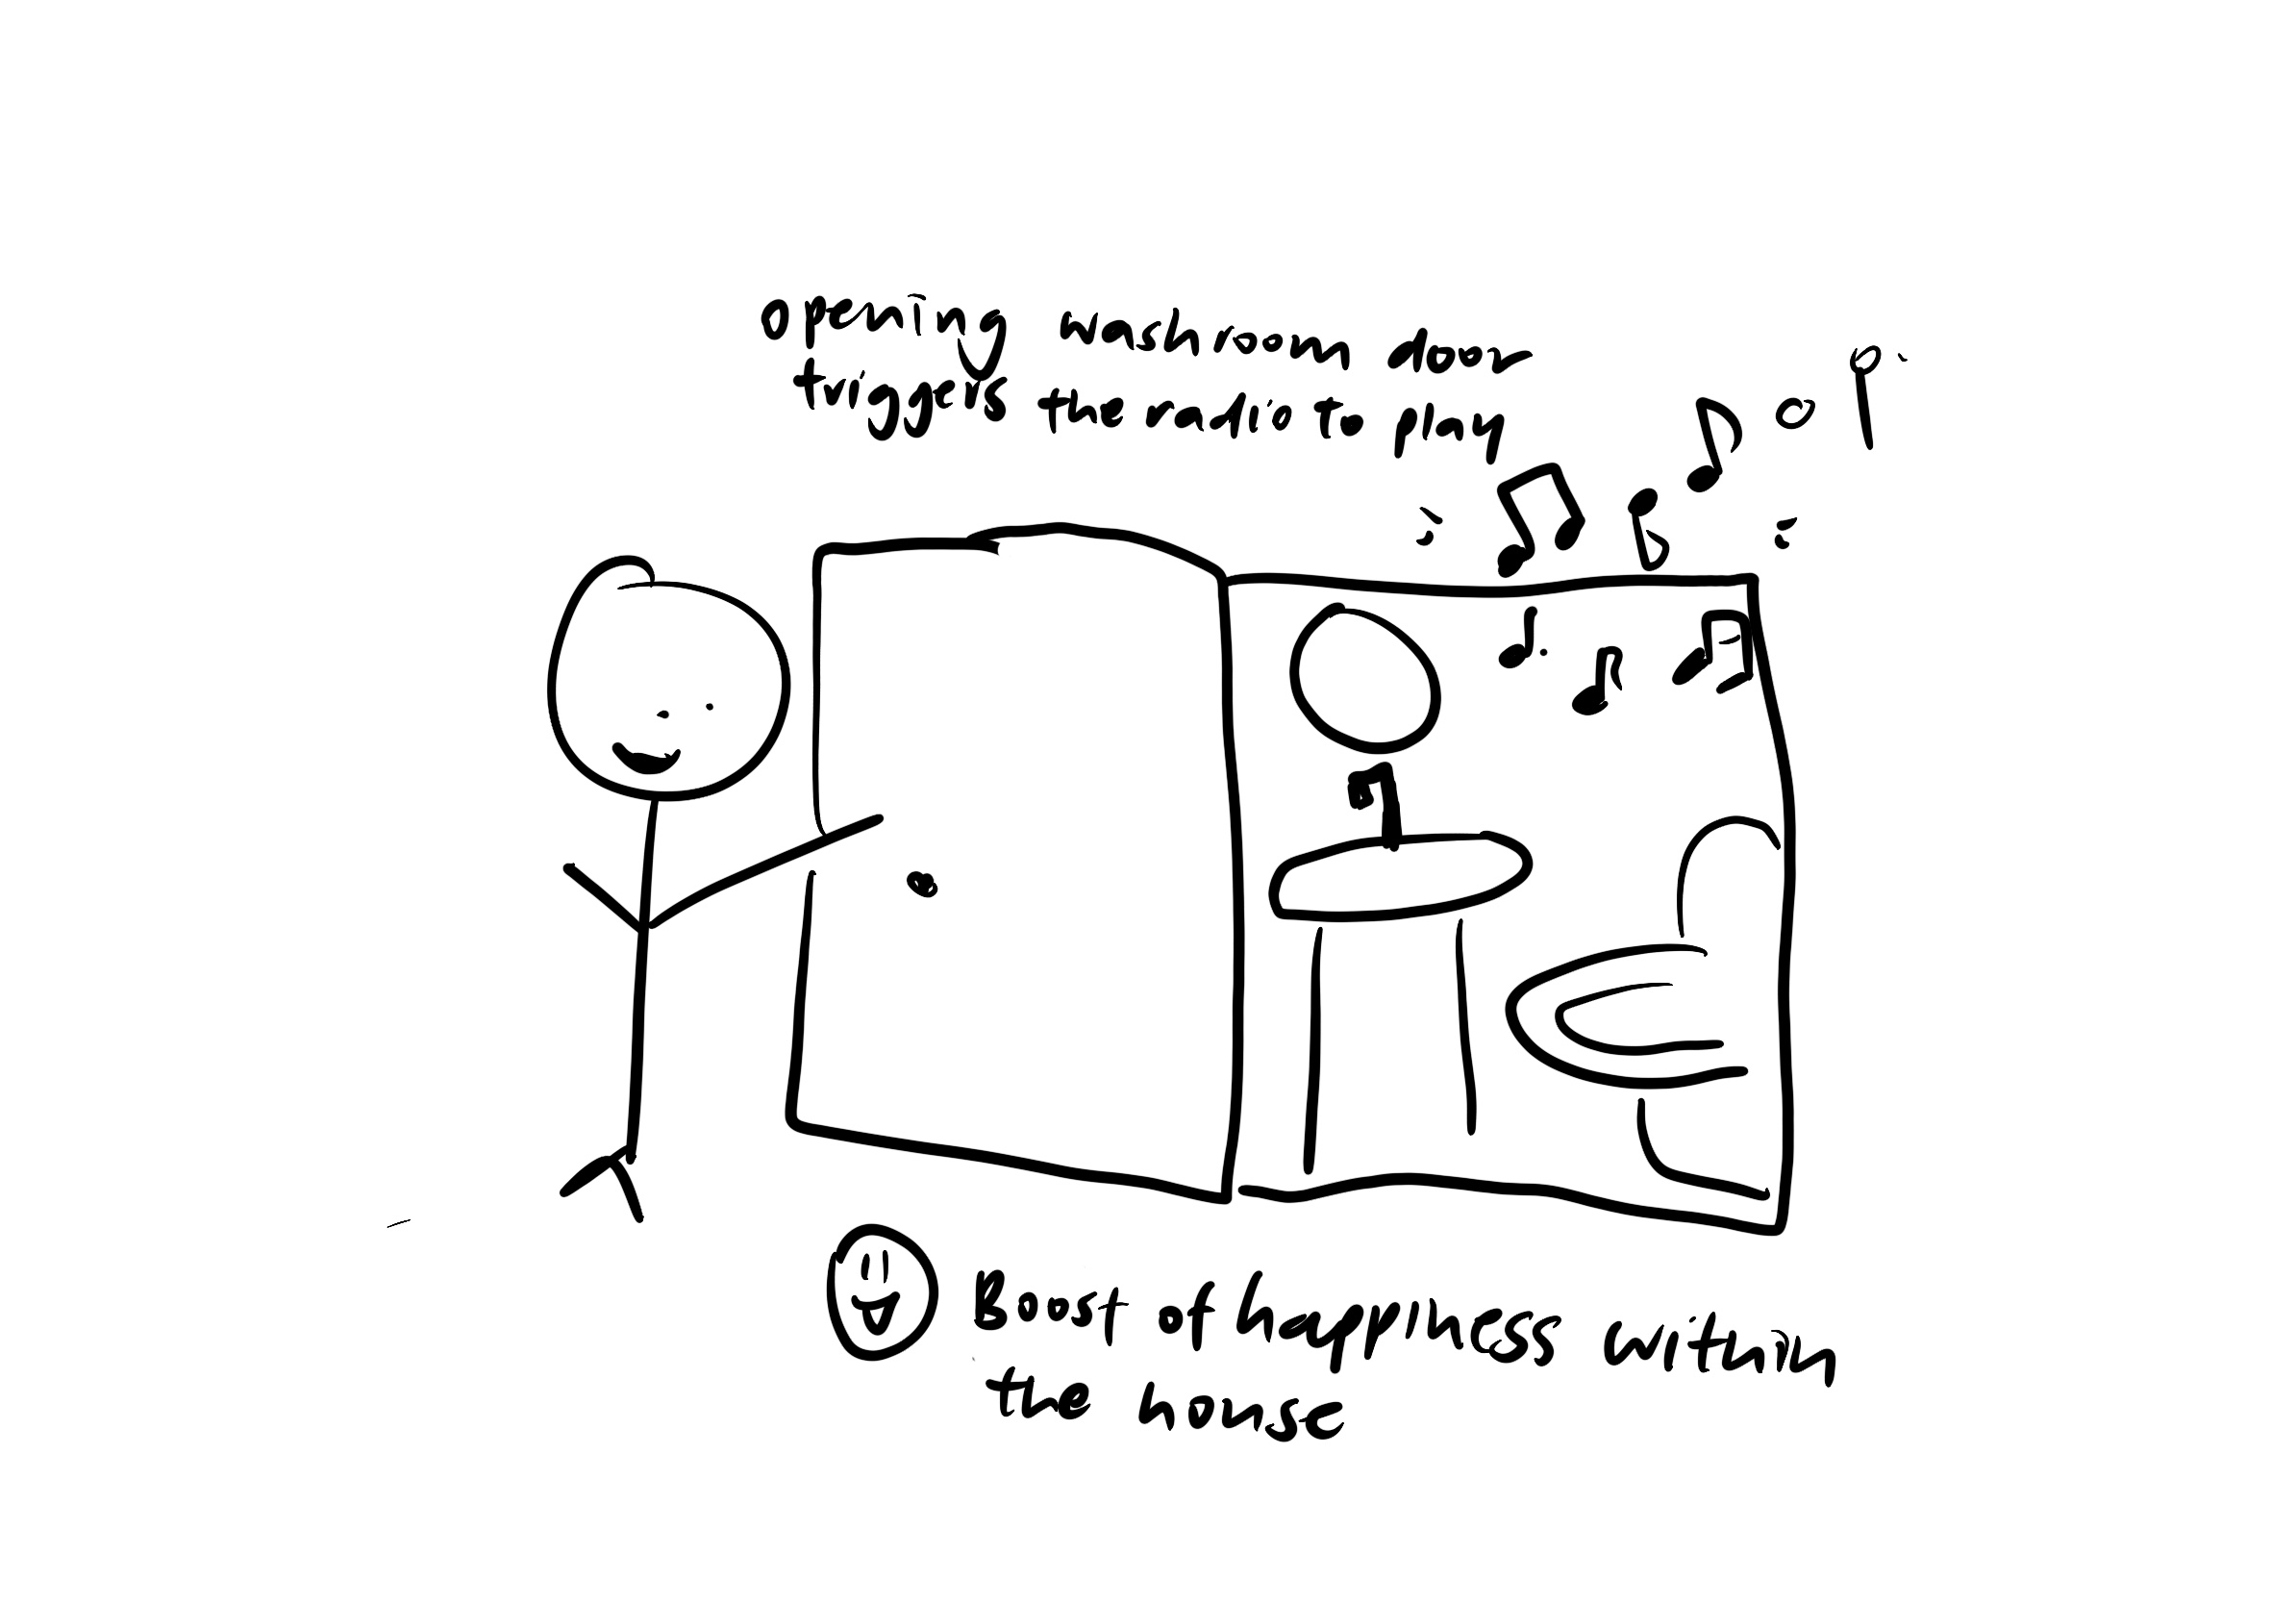 opening washroom door
triggers the radio to play
Boost of happiness within
the house